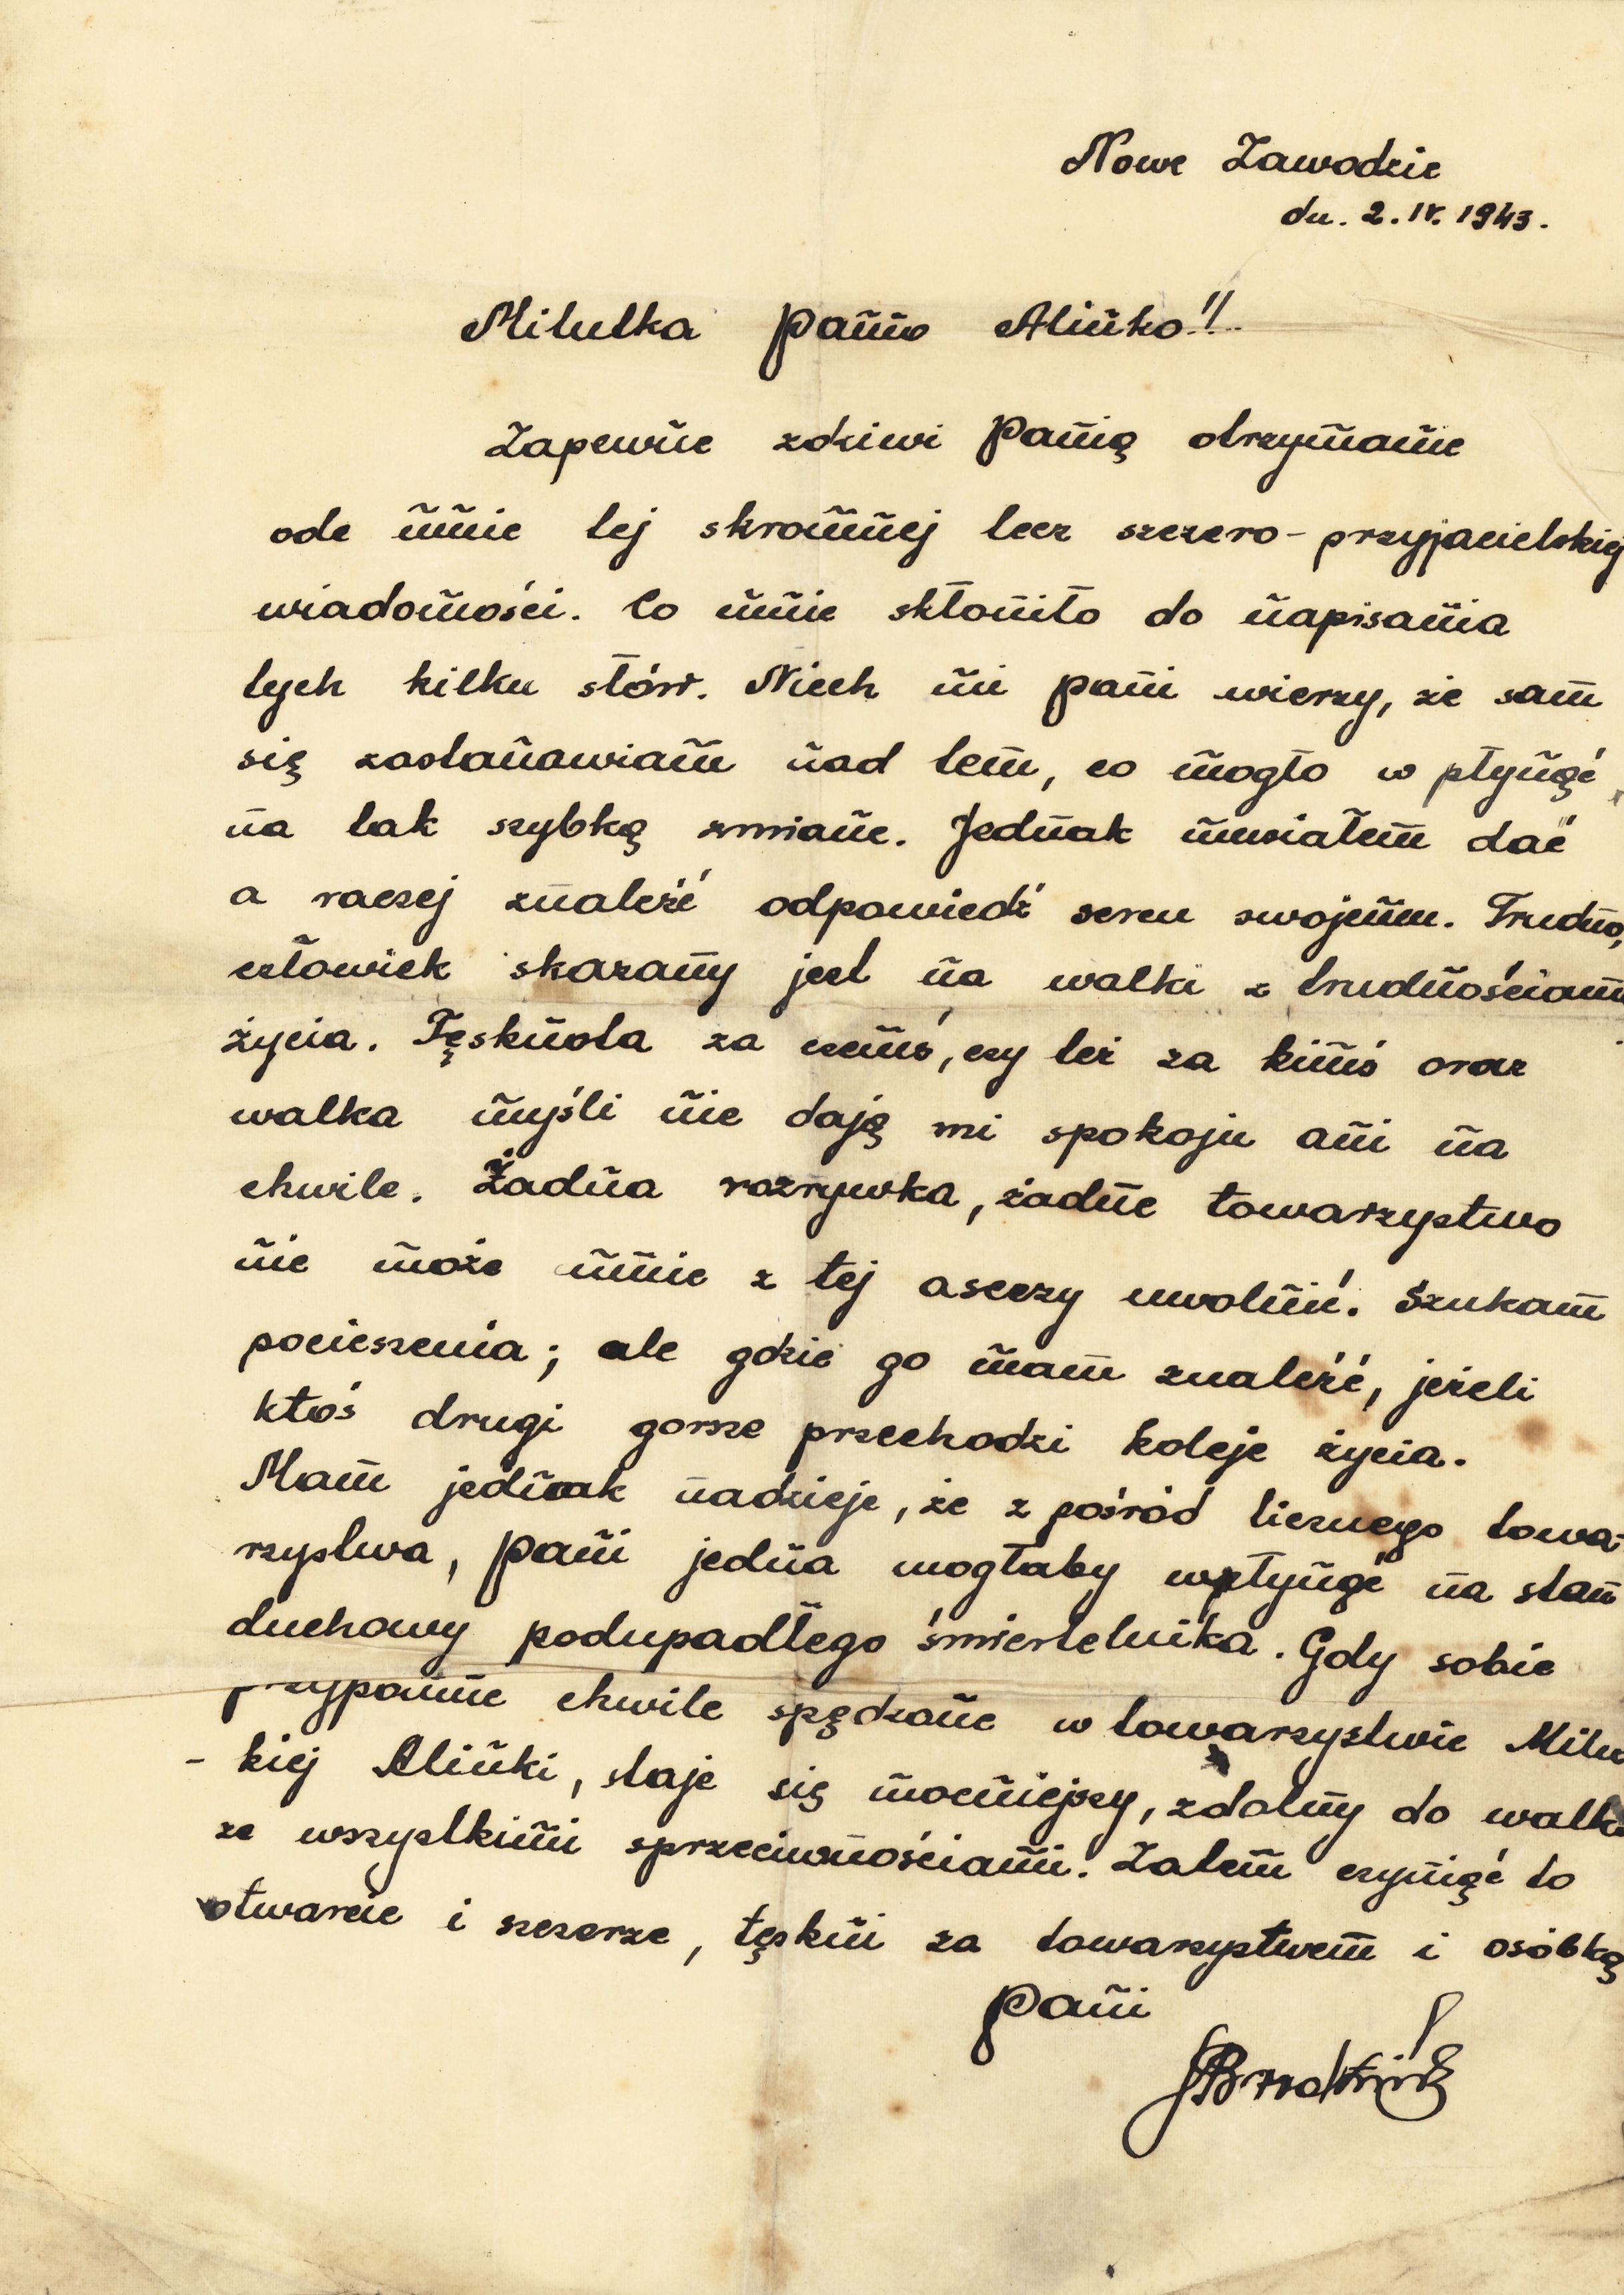 Nowe Zawodzie
dn. 2. IV. 1943.
Milutka Panno Alinko!!
Zapewne zdziwi Panią otrzymanie
ode mnie tej skromnej lecz szczero-przyjacielskiej
wiadomości. Co mnie skłoniło do napisania
tych kilku słów. Niech mi pani wierzy, że sam
się zastanawiam nad tem, co mogło w płynąć
na tak szybką zmianę. Jednak musiałem dać
a raczej znaleźć odpowiedź sercu swojemu. Trudno,
człowiek skazany jest na walki z trudnościami
życia. Tęsknota za czemś, czy też za kimś oraz
walka myśli nie dają mi spokoju ani na
chwile. Żadna rozrywka, żadne towarzystwo
nie może mnie z tej ascezy uwolnić. Szukam
pocieszenia; ale gdzie go mam znaleźć, jeżeli
ktoś drugi gorsze przechodzi koleje życia.
Mam jednak nadzieje, że z pośród licznego towa-
rzystwa, pani jedna mogłaby wpłynąć na stan
duchowy podupadłego śmiertelnika. Gdy sobie
przypomne chwile spędzone w towarzystwie Milu
- kiej Alinki, staje się mocniejszy, zdolny do walki
ze wszystkimi sprzeciwnościami. Zatem czynięć to
otwarcie i szczerze, tęskni za towarzystwem i osóbką
Pani